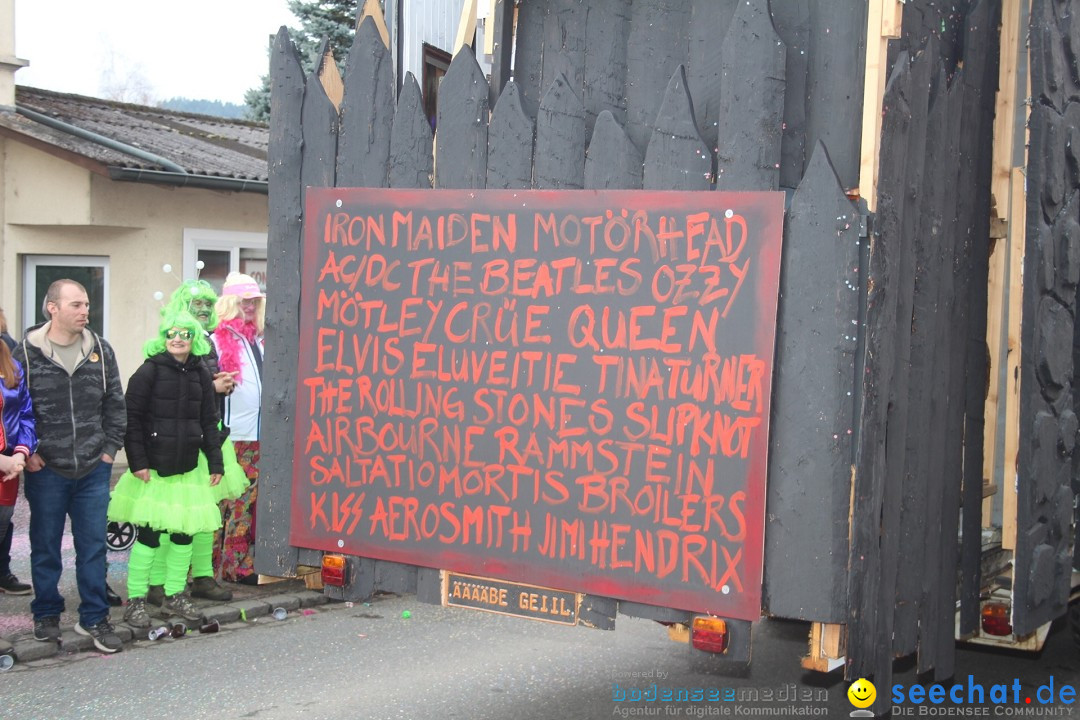 IRON MAIDEN MOTÖRHEAD
AC/DC THE BEATLES OZZY
MÖTLEY CRÜE QUEEN
ELVIS ELUVEITIE TINA TURNER
THE ROLLING STONES SLIPKNOT
AIRBOURNE RAMMSTEIN
SALTATIO MORTIS BROILERS
KISS AEROSMITH JIMI HENDRIX
ÄÄÄÄBE GEIIL
powered by
bodenseemedien
Agentur für digitale Kommunikation
seechat.de
Die Bodensee Community